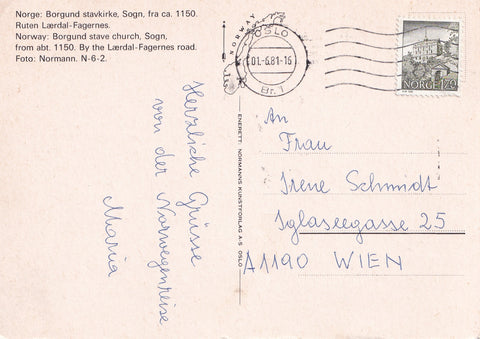 Norge: Borgund stavkirke, Sogn, fra ca. 1150.
Ruten Lærdal-Fagernes.
Norway: Borgund stave church, Sogn,
from abt. 1150. By the Lærdal-Fagernes road.
Foto: Normann. N-6-2.
NORWAY
OSLO
01.-6.81.-16
Br. 1
NORGE 170
Herzliche Grüsse
von der Norwegenreise
Maria
ENERETT: NORMANNS KUNSTFORLAG A-S OSLO
An
Frau
Irene Schmidt
Iglaseegasse 25
A1190 WIEN